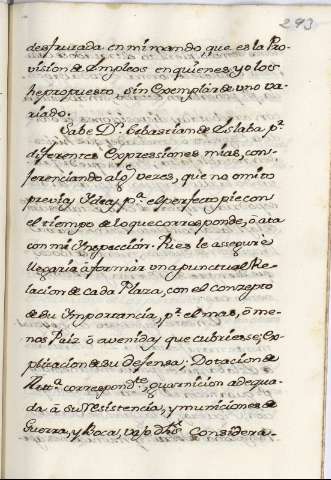 293
desfrutada en mi mando, que es la Pro-
vision de Empleos en quienes yo los
he propuesto, sin Exemplar de uno va-
riado.
Sabe Dn. Sebastian de Eslaba pr.
diferentes Expressiones mias, con-
ferenciando algs. vezes, que no omito
previas Ideas pa. el perfecto pie con
el tiempo de lo que corresponde, ô ata
con mi Inspeccion. Pues le asegurè
llegaria â formar una punctual Re-
lacion de cada Plaza, con el concepto
de su Importancia, pr. el mas, ô me-
nos Paiz ô avenidas que cubriese; Ex-
plicacion de su defensa; Dotacion de
Artta. correspondte., guarnicion adequa-
da â su resistencia, y municiones de
Guerra, y Boca, vajo dhas. Considera-